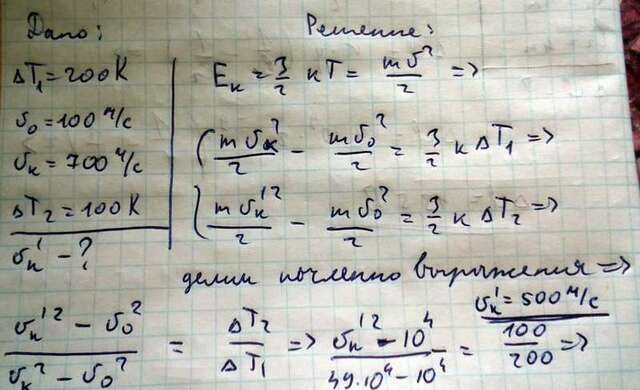 Дано:
ΔT₁ = 200K
υ₀ = 100 м/с
υк = 700 м/с
ΔT₂ = 100K
υк' - ?
Решение:
Eк = 3/2 кT = mυ²/2 =>
mυк²/2 - mυ₀²/2 = 3/2 к ΔT₁ =>
mυк'²/2 - mυ₀²/2 = 3/2 к ΔT₂ =>
делим почленно выражения =>
(υк'² - υ₀²)/(υк² - υ₀²) = ΔT₂/ΔT₁ => (υк'² - 10⁴)/(49·10⁴ - 10⁴) = 100/200 =>
υк' = 500 м/с